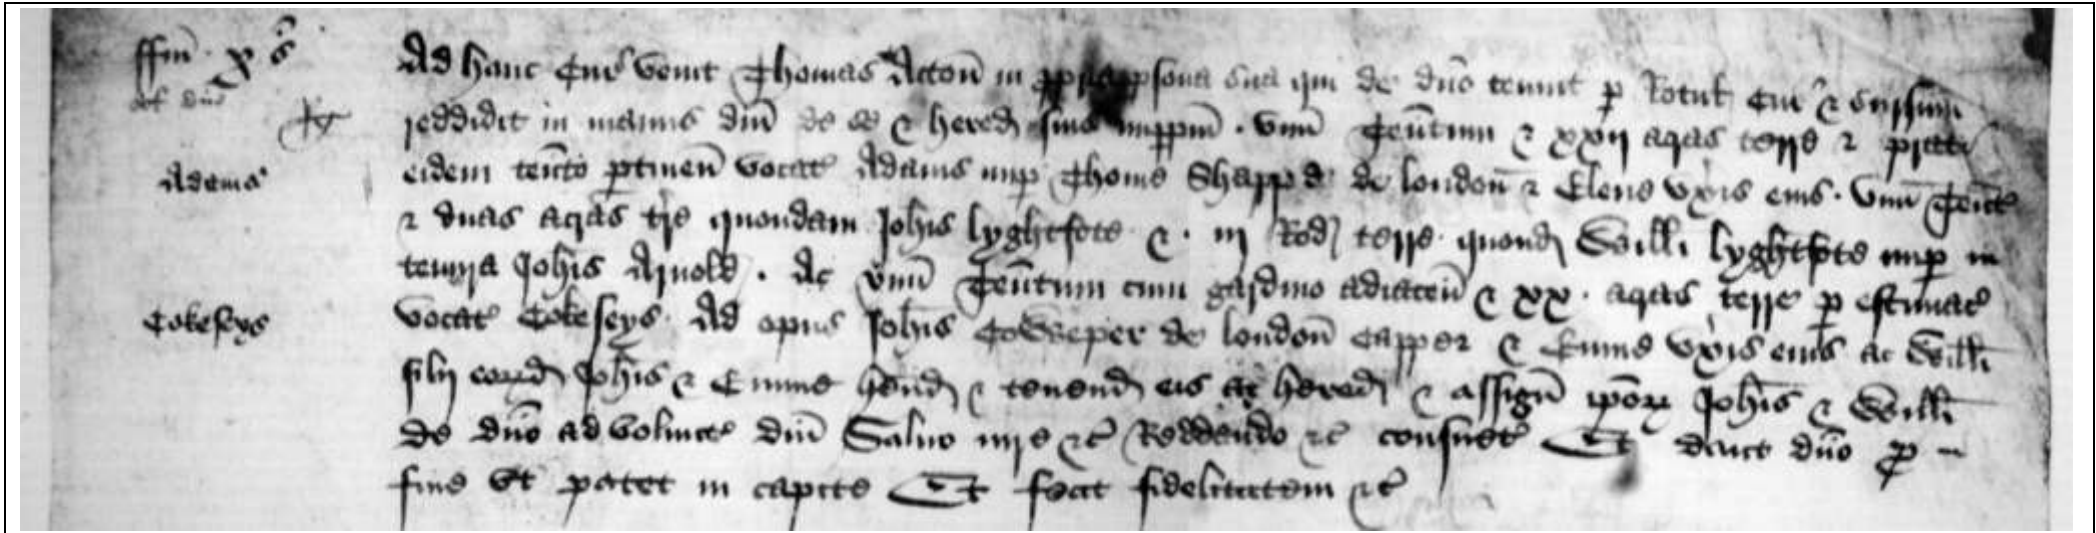 ffin x s
Ad hanc Cur venit Thomas Acton in persona sua qui de dno tenuit p Rotul Cur & sursum
reddidit in manus dni de se & hered suis imppm . unu Tentum & xxij acras terre & prati
Adams
eidem tento ptinen vocat Adams nup Thome Shapp de london & Elene uxis eius . unu Tent
& duas acras tre quondam Johis lyghtfote & . iij Rod terre quond Willi lyghtfote nup in
tenura Johis Arnold . Ac unu Tentum cum gardino adiacen & xx . acras terre p estimac
Cokeseys
vocat Cokeseys Ad opus Johis Cowper de london Capper & Emme uxis eius ac Willi
filij eorund Johis & Emme hend & tenend eis ac hered & assign ipor Johis & Willi
de dno ad volunt dni Salvo iure &c Reddendo &c consuet Et dant dno p
fine ut patet in capite Et fecit fidelitatem &c